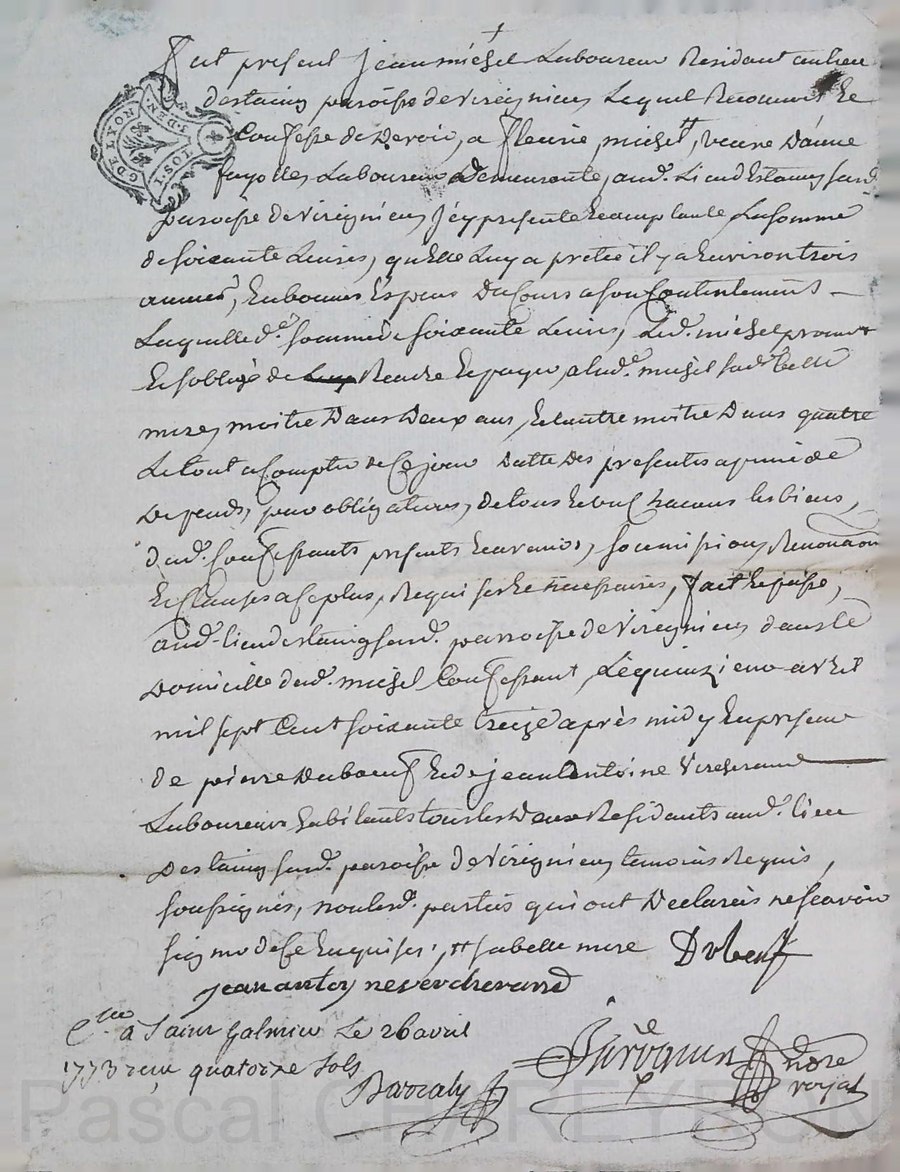 Fut present jean michel Laboureur Residant au lieu
destaing paroisse de virignieu Lequel Reconnoit Et
Confesse de Devoir, a fleurie michel tt, veuve D'anne
fayolles Laboureur Demeurante, aud. Lieu d'Estaing susd.
paroisse de virignieu, icy presente Et acceptante La somme
de soixante Livres, qu'elle Luy a pretée il y a Environ trois
années, En bonnes Especes Du Cours a son Contentement —
Laquelle de. somme de soixante Livres, Led. michel promet
Et s'obligé de Rendre Et payer, a lad. michel sade. belle
mere, moitié Dans Deux ans, Et l'autre moitié Dans quatre
Le tout a Compter de Ce jour Datte Des presentes a peine de
Depends, par obligations, de tous Et un Chacuns les biens,
dud. Confessant, presents Et avenirs, soumissions, Renonciaon
Et Clauses a Ce plus, Requises Et necessaires, fait Et passé,
aud. lieu destaing susd. parroisse de virignieu dans Le
Domicille dud. michel Confessant, Le quinzieme avril
mil sept Cent soixante treize après midy En presence
de pierre Duboeuf Et de jean antoine vercherand
Laboureurs habitants tous les Deux Residants aud. lieu
Destaing susd. paroisse de virignieu, temoins Requis,
soussignés, non lesd. parties qui ont Declarées ne scavoir
signer de Ce Enquises, tt sa belle mere Dubeuf
jean antoy ne verchérand
C.lle à Saint Galmier Le 26 avril
1773 reçu quatorze sols
Barraly
nore
royal
G DE LYON
Pascal CHAREYRON